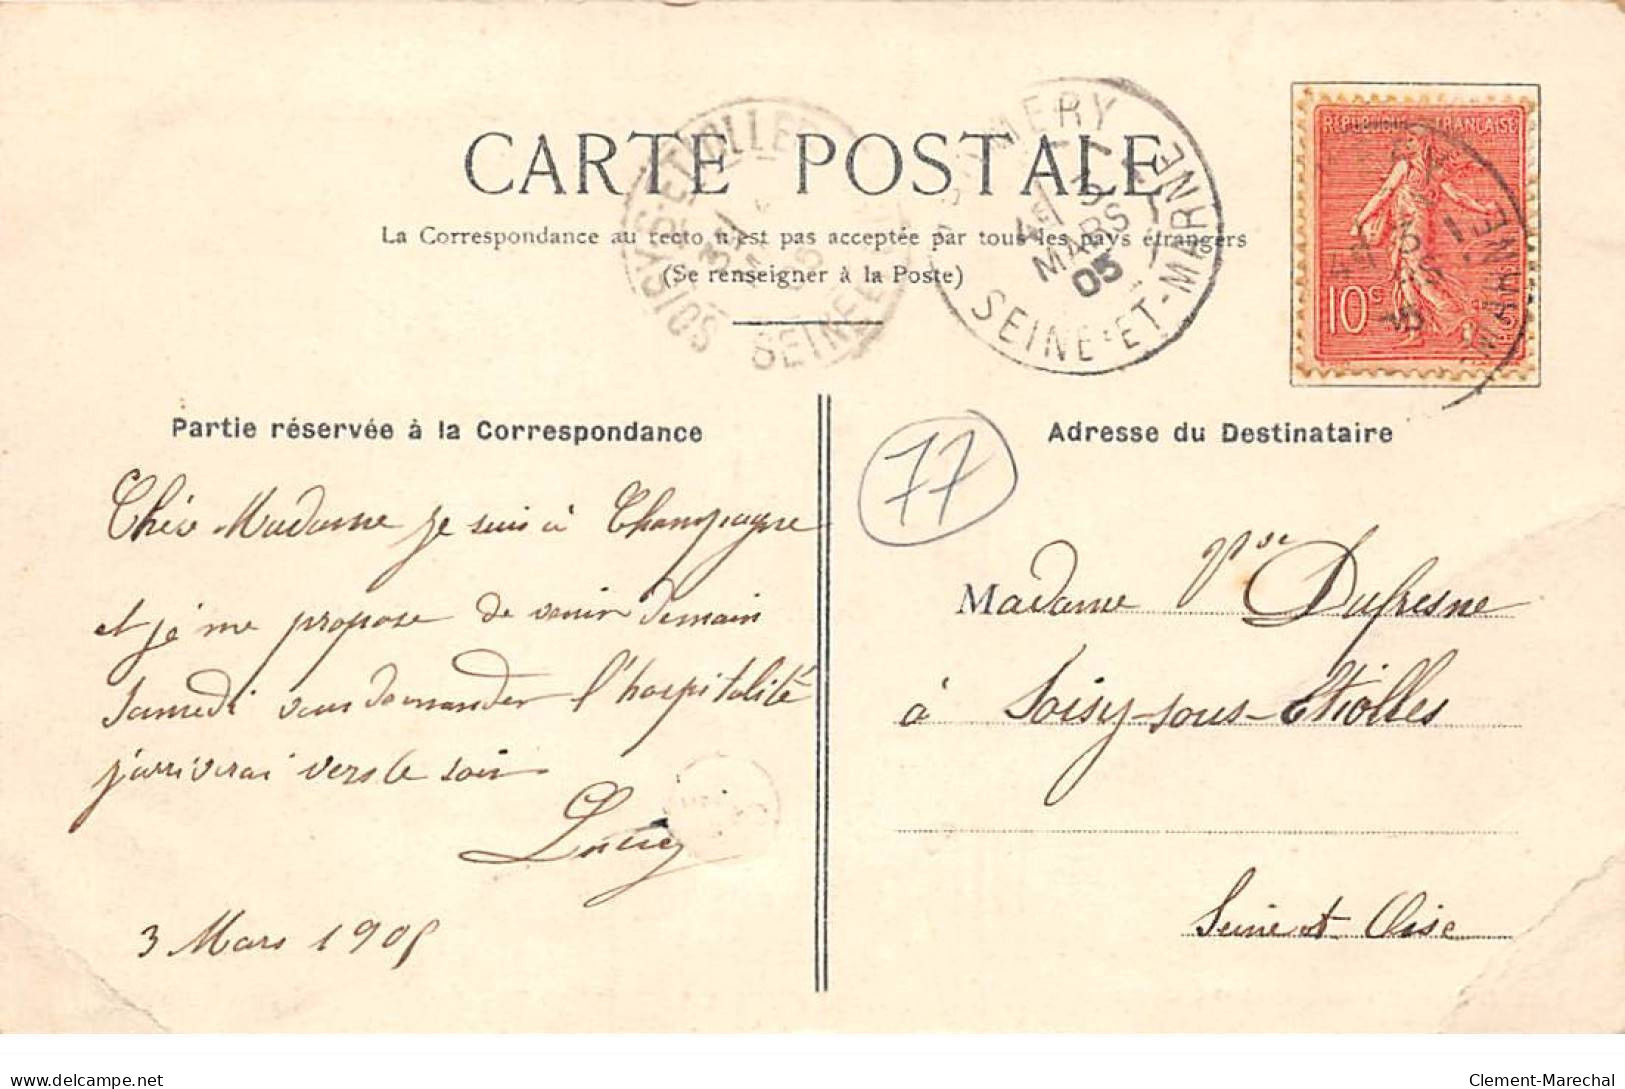 CARTE POSTALE
La Correspondance au recto n'est pas acceptée par tous les pays étrangers
(Se renseigner à la Poste)
SOISY-S-ETIOLLES
SEINE
MERY
MARS
05
SEINE-ET-MARNE
REPUBLIQUE FRANÇAISE
10c
Partie réservée à la Correspondance
Chère Madame je suis à Champagne
et je me propose de venir demain
Samedi vous demander l'hospitalité
j'arriverai vers le soir
3 Mars 1905
77
Adresse du Destinataire
Madame Vve Dufresne
à Soisy-sous-Etiolles
Seine et Oise
delcampe.net
Clement-Marechal